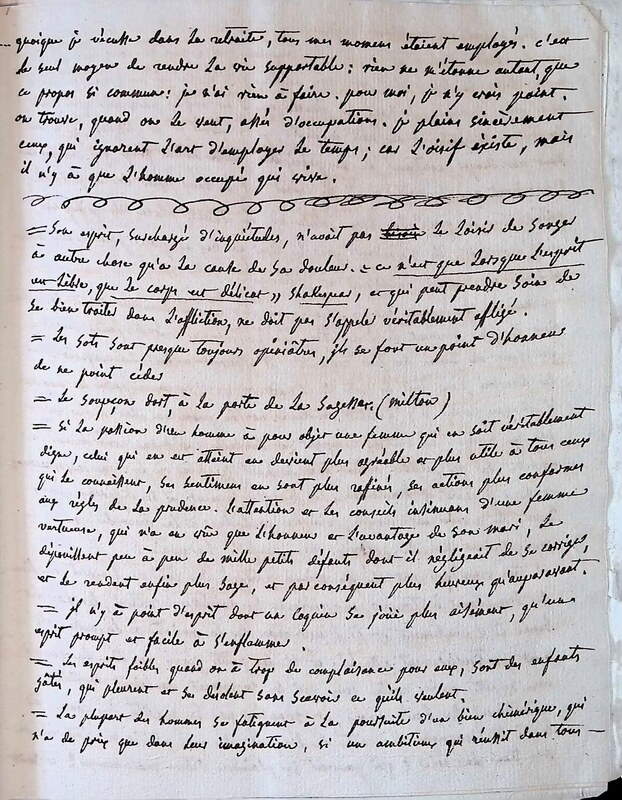 ... quoique je vécusse dans la retraite, tous mes momens étaient employés. c'est
le seul moyen de rendre la vie supportable: rien ne m'étonne autant, que
ce propos si commun: je n'ai rien à faire. pour moi, je n'y crois point.
on trouve, quand on le veut, assés d'occupations. je plains sincèrement
ceux, qui ignorent l'art d'employer le temps; car l'oisif éxiste, mais
il n'y à que l'homme occupé qui vive.
= Son esprit, surchargé d'inquiétudes, n'avoit pas le loisir de songer
à autre chose qu'à la cause de sa douleur. = ce n'est que lorsque l'esprit
est libre, que le corps est délicat ,, Shakespear, et qui peut prendre soin de
se bien traiter dans l'affliction, ne doit pas s'appeler véritablement affligé.
= Les sots sont presque toujours opiniâtres, ils se font un point d'honneur
de ne point céder
= Le soupçon dort, à la porte de la sagesse. (milton)
= Si la passion d'un homme à pour objet une femme qui en soit véritablement
digne, celui qui en est atteint en devient plus agréable et plus utile à tous ceux
qui le connaissent, ses sentimens en sont plus raffinés, ses actions plus conformes
aux règles de la prudence. l'attention et les conseils insinuans d'une femme
vertueuse, qui n'a en vüe que l'honneur et l'avantage de son mari, le
dépouillent peu à peu de mille petits défauts dont il négligeait de se corriger,
et le rendent enfin plus sage, et par conséquent plus heureux qu'auparavant.
= il n'y à point d'esprit dont un coquin se joüe plus aisément, qu'un
esprit prompt et facile à s'enflammer.
= Les esprits foibles quand on à trop de complaisance pour eux, sont des enfants
gâtés, qui pleurent et se désolent sans scavoir ce qu'ils veulent.
= La plupart des hommes se fatiguent à la poursuite d'un bien chimérique, qui
n'a de prix que dans leur imagination, si un ambitieux qui réussit dans tous —